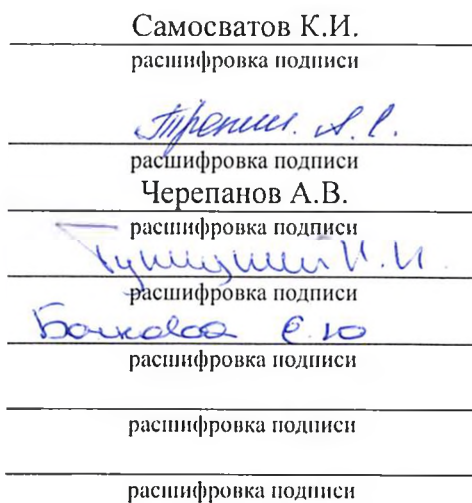 Самосватов К.И.
расшифровка подписи
расшифровка подписи
Черепанов А.В.
расшифровка подписи
К.И.
расшифровка подписи
Е.Ю
расшифровка подписи
расшифровка подписи
расшифровка подписи